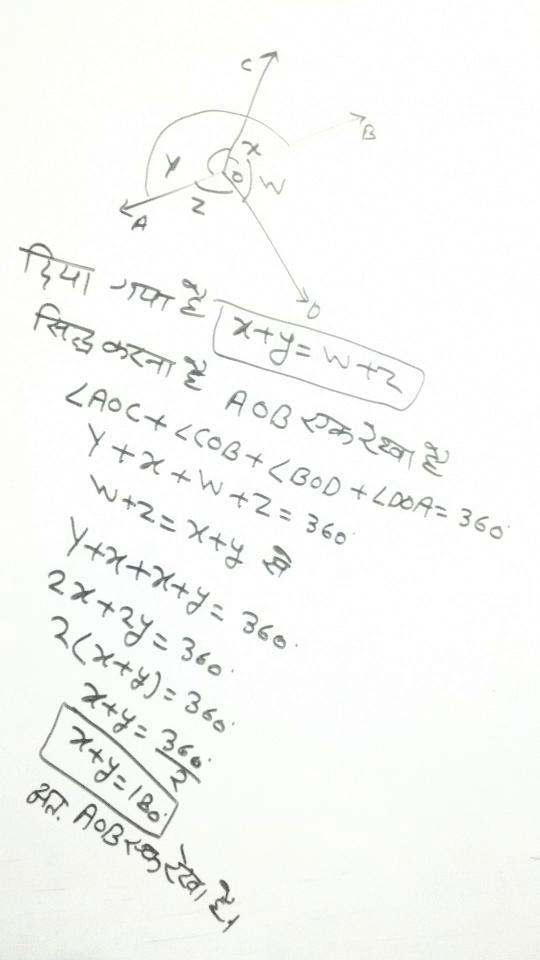 C
B
x
y
O
W
Z
A
D
दिया गया है x+y=w+z
सिद्ध करना है AOB एक रेखा है
∠AOC+∠COB+∠BOD+∠DOA=360°
y+x+w+z=360°
w+z=x+y से
y+x+x+y=360°
2x+2y=360°
2(x+y)=360°
x+y=360°/2
x+y=180°
अतः AOB एक रेखा है।